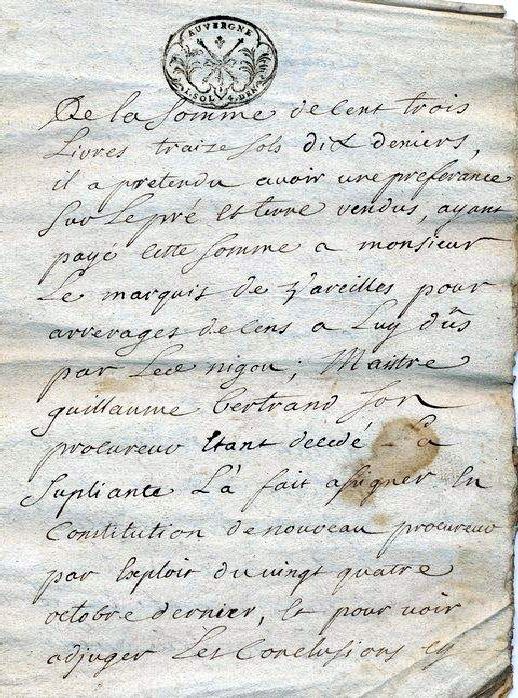 AUVERGNE
1. SOL 4. DEN
De la somme de Cent trois
Livres traize sols dix deniers,
il a pretendu avoir une preferance
sur Le pré et terre vendus, ayant
payé cette somme a monsieur
Le marquis de
arrerages de Cens a Luy dûs
par nigou ; Maitre
guillaume bertrand son
procureur Etant decedé La
supliante L'à fait assigner En
Constitution de nouveau procureur
par Exploit du vingt quatre
octobre dernier, Et pour voir
adjuger Les Conclusions cy